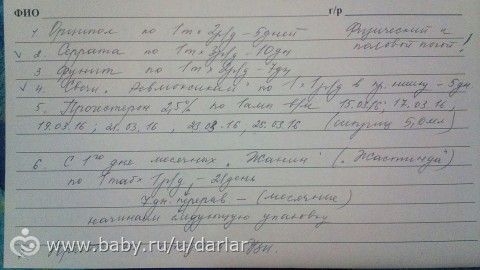 ФИО г/р
1. Орципол по 1т × 2р/д – 5дней Физический и
2. Серрата по 1т × 3р/д – 10дн половой покой!
3 по 1т × 2р/д – 7дн
4. Свечи „Ревмоксикам" по 1 × 1р/д в пр. кишку – 5дн.
5. 2,5% по 1амп в/м 15.03.16; 17.03.16
19.03.16; 21.03.16; 23.03.16; 25.03.16 (шприц 5,0мл)
6. С 1го дня месячных „Жанин" („Жастинда")
по 1таб × 1р/д – 21день
7дн. перерыв – (месячные)
начинаем следующую упаковку
www.baby.ru/u/darlar